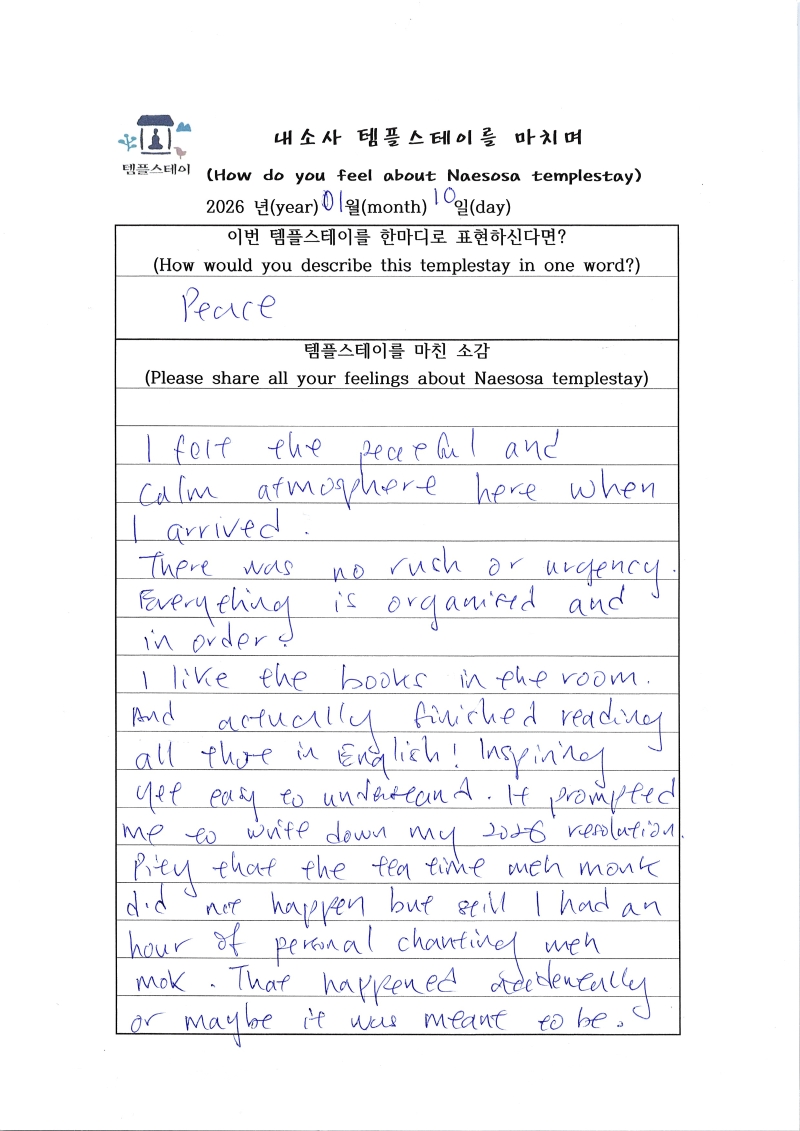 템플스테이
내소사 템플스테이를 마치며
(How do you feel about Naesosa templestay)
2026 년(year) 01월(month) 10일(day)
이번 템플스테이를 한마디로 표현하신다면?
(How would you describe this templestay in one word?)
Peace
템플스테이를 마친 소감
(Please share all your feelings about Naesosa templestay)
I felt the peaceful and
calm atmosphere here when
I arrived.
There was no rush or urgency.
Everything is organised and
in order.
I like the books in the room.
And actually finished reading
all those in English! Inspiring
yet easy to understand. It prompted
me to write down my 2026 resolution.
Pity that the tea time with monk
did not happen but still I had an
hour of personal chanting with
mok. That happened accidentally
or maybe it was meant to be.